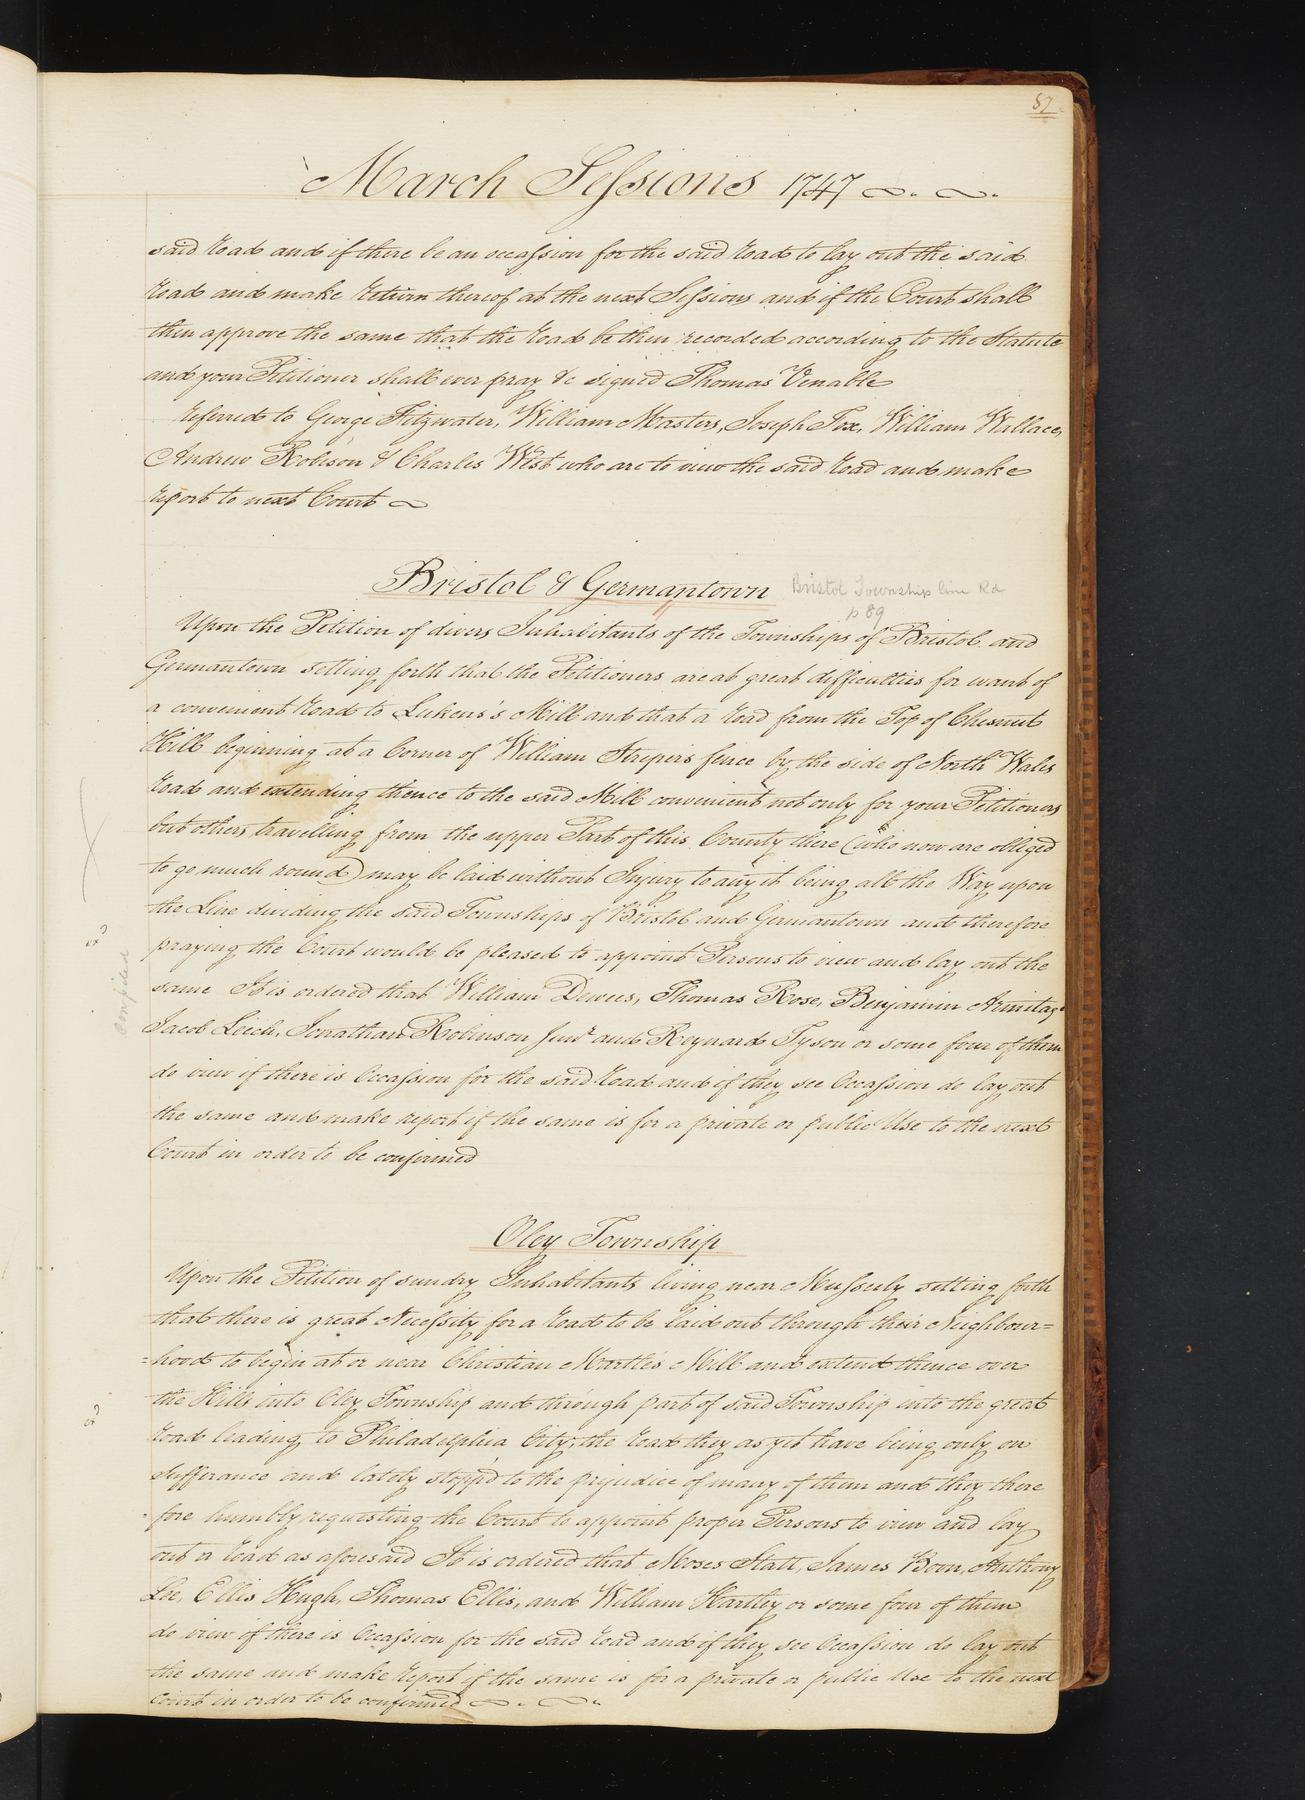 87
March Sessions 1747
said Road and if there be an occassion for the said Road to lay out the said
Road and make Return thereof at the next Sessions and if the Court shall
then approve the same that the Road be then recorded according to the Statute
and your Petitioner shall ever pray &c signed Thomas Venable
Referred to George Fitzwater, William Masters, Joseph Fox, William Wallace,
Andrew Robeson & Charles West who are to view the said Road and make
report to next Court
Bristol & Germantown Bristol Township line Rd
p 89
Upon the Petition of divers Inhabitants of the Townships of Bristol and
Germantown setting forth that the Petitioners are at great difficulties for want of
a convenient Road to Lukens's Mill and that a Road from the Top of Chesnut
Hill beginning at a Corner of William Strepers fence by the side of North Wales
Road and extending thence to the said Mill convenient not only for your Petitioners
but others travelling from the upper Part of this County there (who now are obliged
to go much round) may be laid without Injury to any it being all the Way upon
the Line dividing the said Townships of Bristol and Germantown and therefore
praying the Court would be pleased to appoint Persons to view and lay out the
same It is ordered that William Dewees, Thomas Rose, Benjamin Armitage
Jacob Leech, Jonathan Robinson Junr and Reynard Tyson or some four of them
do view if there is Occassion for the said Road and if they see Occassion do lay out
the same and make report if the same is for a private or public Use to the next
Court in order to be confirmed
Compiled
Oley Township
Upon the Petition of sundry Inhabitants living near setting forth
that there is great Necessity for a Road to be laid out through their Neighbour=
=hood to begin at or near Christian Mill and extend thence over
the Hills into Oley Township and through part of said Township into the great
Road leading to Philadelphia City, the Road they as yet have being only on
sufferance and lately stopp'd to the prejudice of many of them and they there
-fore humbly requesting the Court to appoint proper Persons to view and lay
out a Road as aforesaid It is ordered that Moses Statt, James Boon, Anthony
Lee, Ellis Hugh, Thomas Ellis, and William Hartley or some four of them
do view if there is Occassion for the said Road and if they see Occassion do lay out
the same and make Report if the same is for a private or public Use to the next
Court in order to be confirmed